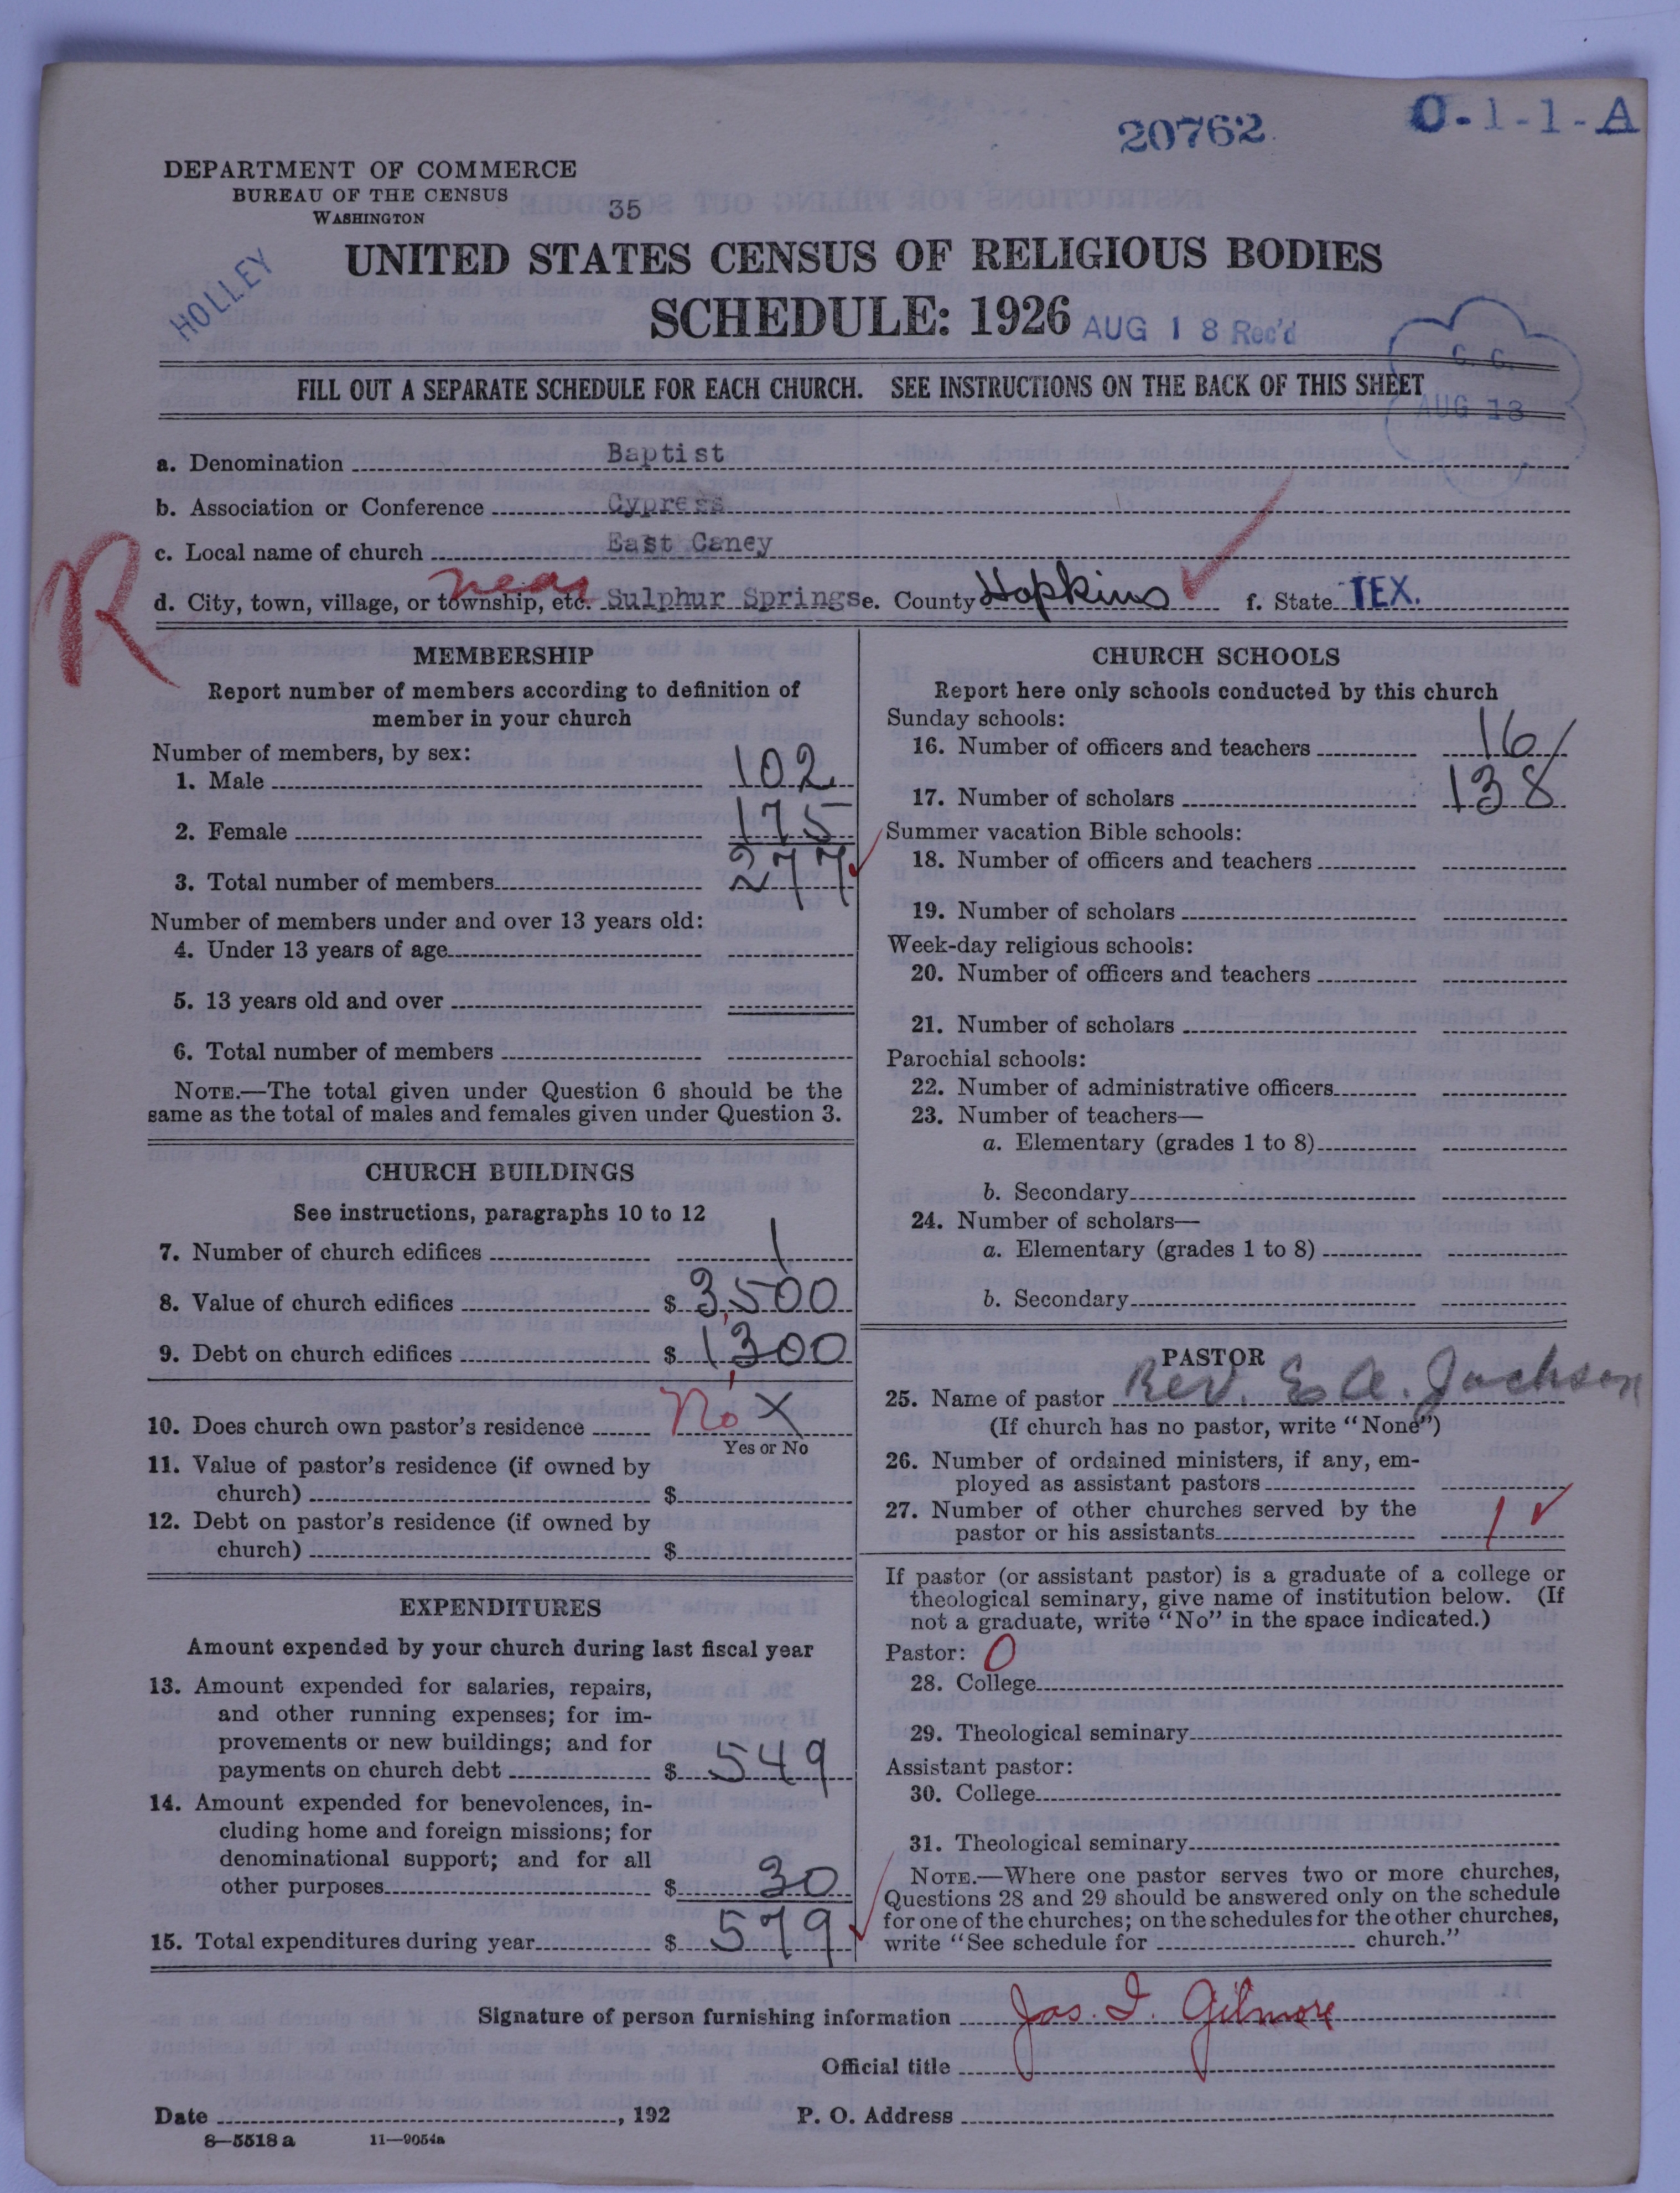 20762
O-1-1-A
DEPARTMENT OF COMMERCE
BUREAU OF THE CENSUS
WASHINGTON
35
HOLLEY
UNITED STATES CENSUS OF RELIGIOUS BODIES
SCHEDULE: 1926
AUG 18 Rec'd
C. C.
AUG 18
FILL OUT A SEPARATE SCHEDULE FOR EACH CHURCH. SEE INSTRUCTIONS ON THE BACK OF THIS SHEET
a. Denomination Baptist
b. Association or Conference Cypress
c. Local name of church East Caney
R
near
d. City, town, village, or township, etc. Sulphur Springs e. County Hopkins f. State TEX.
MEMBERSHIP
Report number of members according to definition of
member in your church
Number of members, by sex:
1. Male 102
2. Female 175
3. Total number of members 277
Number of members under and over 13 years old:
4. Under 13 years of age
5. 13 years old and over
6. Total number of members
NOTE.—The total given under Question 6 should be the
same as the total of males and females given under Question 3.
CHURCH BUILDINGS
See instructions, paragraphs 10 to 12
7. Number of church edifices 1
8. Value of church edifices $ 3,500
9. Debt on church edifices $ 1,300
10. Does church own pastor's residence No X
Yes or No
11. Value of pastor's residence (if owned by
church) $
12. Debt on pastor's residence (if owned by
church) $
EXPENDITURES
Amount expended by your church during last fiscal year
13. Amount expended for salaries, repairs,
and other running expenses; for im-
provements or new buildings; and for
payments on church debt $ 549
14. Amount expended for benevolences, in-
cluding home and foreign missions; for
denominational support; and for all
other purposes $ 30
15. Total expenditures during year $ 579
CHURCH SCHOOLS
Report here only schools conducted by this church
Sunday schools:
16. Number of officers and teachers 16
17. Number of scholars 138
Summer vacation Bible schools:
18. Number of officers and teachers
19. Number of scholars
Week-day religious schools:
20. Number of officers and teachers
21. Number of scholars
Parochial schools:
22. Number of administrative officers
23. Number of teachers—
a. Elementary (grades 1 to 8)
b. Secondary
24. Number of scholars—
a. Elementary (grades 1 to 8)
b. Secondary
PASTOR
25. Name of pastor Rev. E. A. Jackson
(If church has no pastor, write "None")
26. Number of ordained ministers, if any, em-
ployed as assistant pastors
27. Number of other churches served by the
pastor or his assistants 1
If pastor (or assistant pastor) is a graduate of a college or
theological seminary, give name of institution below. (If
not a graduate, write "No" in the space indicated.)
Pastor: O
28. College
29. Theological seminary
Assistant pastor:
30. College
31. Theological seminary
NOTE.—Where one pastor serves two or more churches,
Questions 28 and 29 should be answered only on the schedule
for one of the churches; on the schedules for the other churches,
write "See schedule for church."
Signature of person furnishing information Jas. I. Gilmore
Official title
Date , 192 P. O. Address
8—5518 a 11—9054a